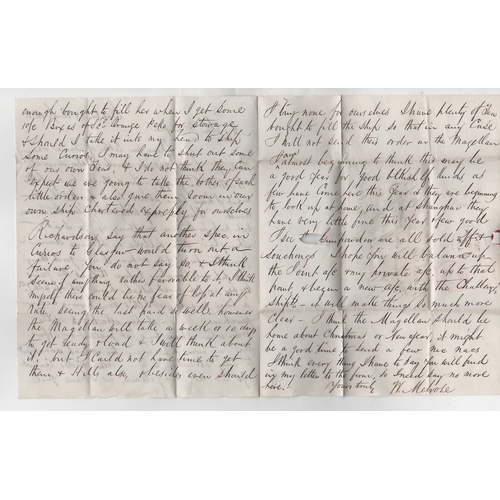 enough bought to fill her when I get some
more Boxes of Sd Orange Peko for stowage
& should I take it into my head to ship
some Curios, I may have to shut out some
of our own Tea, & I do not think they can
expect we are going to take the bother of such
little orders & also give them room in our
own Ship Chartered expressly for ourselves
Richardsons say that another spec. in
Curios to Glasgow would turn out a
failure. You do not say so, & I think
seem if anything rather favorable to it. I think
myself there could be no fear of loss at any
rate, seeing the last paid so well: however
the Magellan will take a week or 10 days
to get ready & load & I will think about
it: but I could not have time to get
them & Hills also, & besides even should
I buy none for ourselves I have plenty of Tea
bought to fill the Ship so that in any Case
I will not send this order in the Magellan
I almost beginning to think this may be
a good year for Good Teas of kinds as
few have Come here this year & they are beginning
to look up at home, and at Shanghae they
have very little fine this year & few good
I see the Gunpowders are all sold off &
Souchongs. I hope you will balance up
the Joint a/c & my private a/c up to that
point & begin a new a/c with the Challenger
Ships - it will make things so much more
clear - I think the Magellan should be
home about Christmas or New year, it might
be a good time to send a few nic nacs
I think every thing I have to say you will find
in my letter to the firm, so I need say no more
here.: Yours truly W Melrose